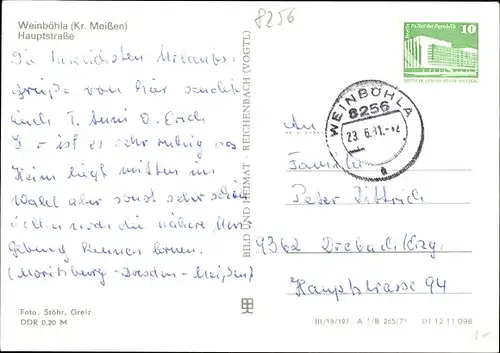 8256
Weinböhla (Kr. Meißen)
Hauptstraße
Die herzlichsten Urlaubs-
grüße von hier sendet
euch T. Anni u. Erich
ist es sehr ruhig das
Heim liegt mitten im
Wald aber sonst sehr schön
wollen noch die nähere Um
gebung kennen lernen.
(Moritzburg - Dresden - Meißen)
Foto: Stöhr, Greiz
DDR 0,20 M
BILD UND HEIMAT · REICHENBACH (VOGTL)
10
WEINBÖHLA
8256
23.6.81.-12
a
An
Familie
Peter Dittrich
9362 Drebach/Erzg.
Hauptstrasse 94
III/18/197 A 1/B 265/71 01 12 11 098